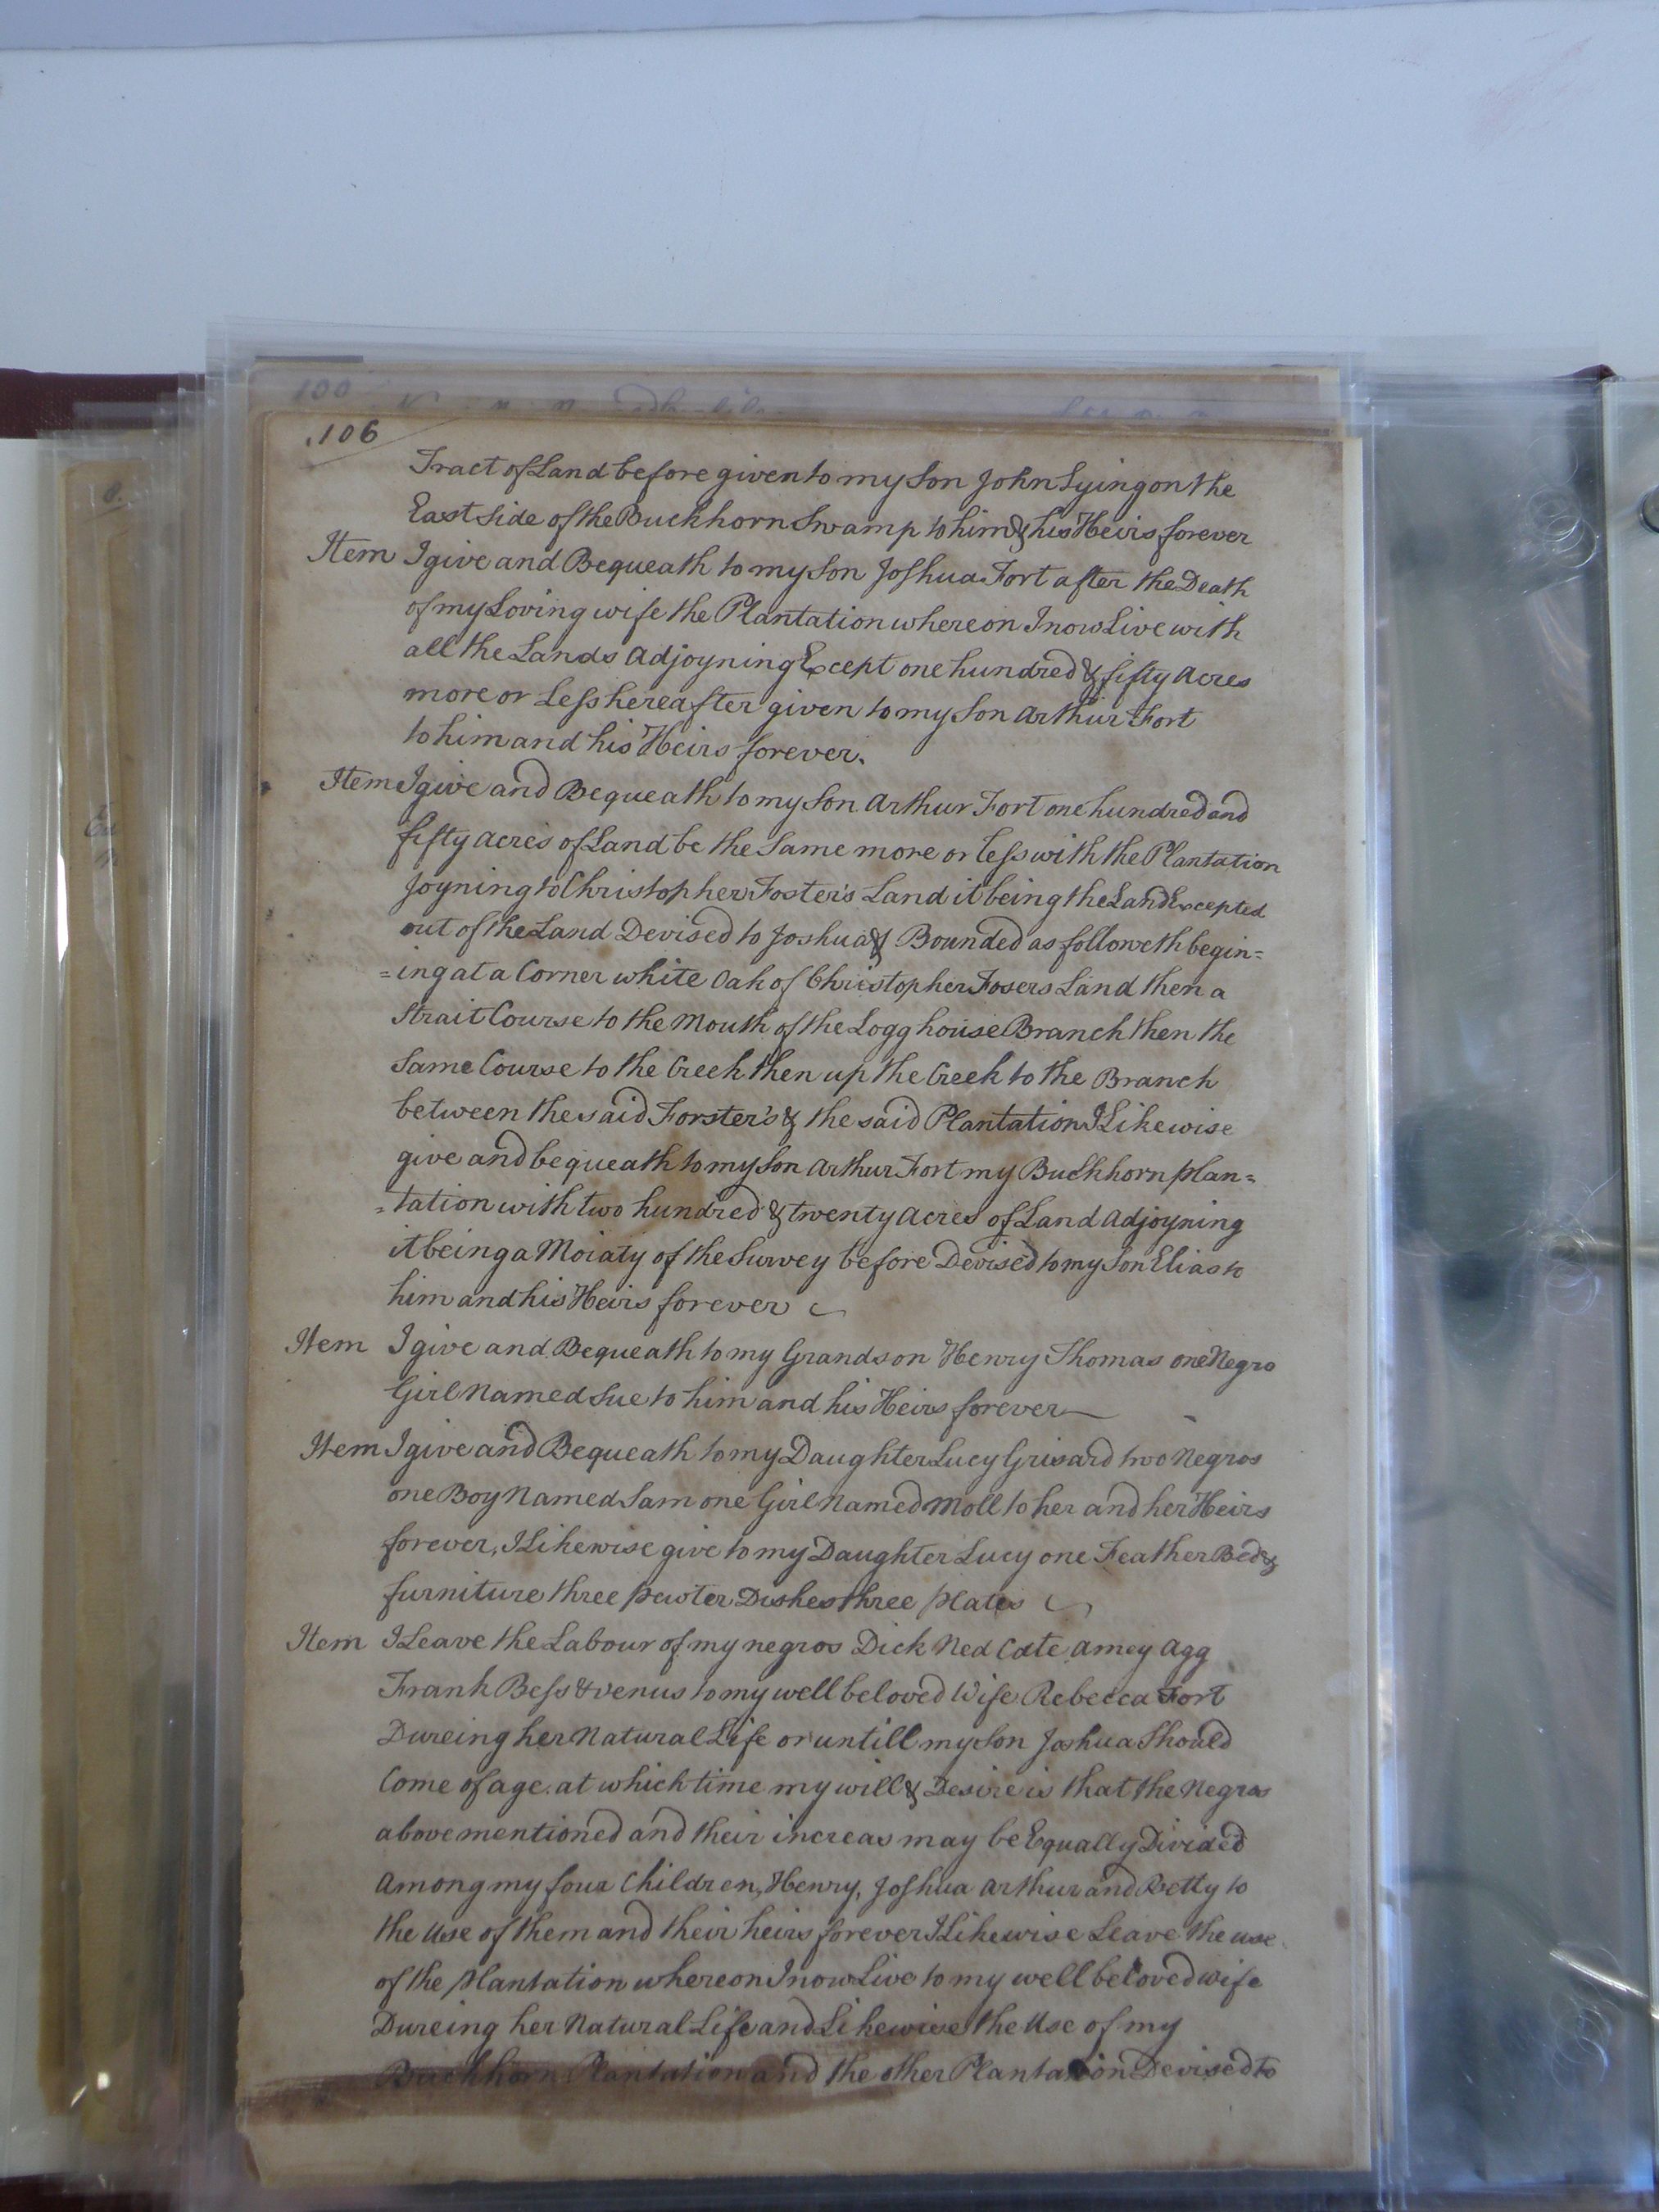 106
Tract of Land before given to my Son John Lying on the
East Side of the Buckhorn Swamp to him & his Heirs forever
Item I give and Bequeath to my Son Joshua Fort after the Death
of my Loving wife the Plantation whereon I now Live with
all the Lands Adjoyning Except one hundred & fifty Acres
more or Less hereafter given to my Son Arthur Fort
to him and his Heirs forever.
Item I give and Bequeath to my Son Arthur Fort one hundred and
fifty Acres of Land be the Same more or less with the Plantation
Joyning to Christopher Foster's Land it being the Land Excepted
out of the Land Devised to Joshua & Bounded as followeth begin=
=ing at a Corner white Oak of Christopher Fosers Land then a
Strait Course to the Mouth of the Logg house Branch then the
Same Course to the Creek then up the Creek to the Branch
between the said Forster's & the said Plantation I Likewise
give and bequeath to my Son Arthur Fort my Buckhorn plan=
=tation with two hundred & twenty Acres of Land Adjoyning
it being a Moiaty of the Survey before Devised to my Son Elias to
him and his Heirs forever
Item I give and Bequeath to my Grandson Henry Thomas one Negro
Girl Named Sue to him and his Heirs forever
Item I give and Bequeath to my Daughter Lucy Grisard two Negros
one Boy Named Sam one Girl Named Moll to her and her Heirs
forever, I Likewise give to my Daughter Lucy one Feather Bed &
furniture three pewter Dishes three plates
Item I Leave the Labour of my negros Dick Ned Cate Amey Agg
Frank Bess & venus to my well beloved Wife Rebecca Fort
Dureing her Natural Life or untill my Son Joshua Should
Come of age. at which time my will & Desire is that the Negros
above mentioned and their increas may be Equally Divided
Among my four Children, Henry, Joshua Arthur and Betty to
the Use of them and their heirs forever I Likewise Leave the use
of the plantation whereon I now Live to my well beloved wife
Dureing her Natural Life and Likewise the Use of my
Buckhorn Plantation and the other Plantation Devised to